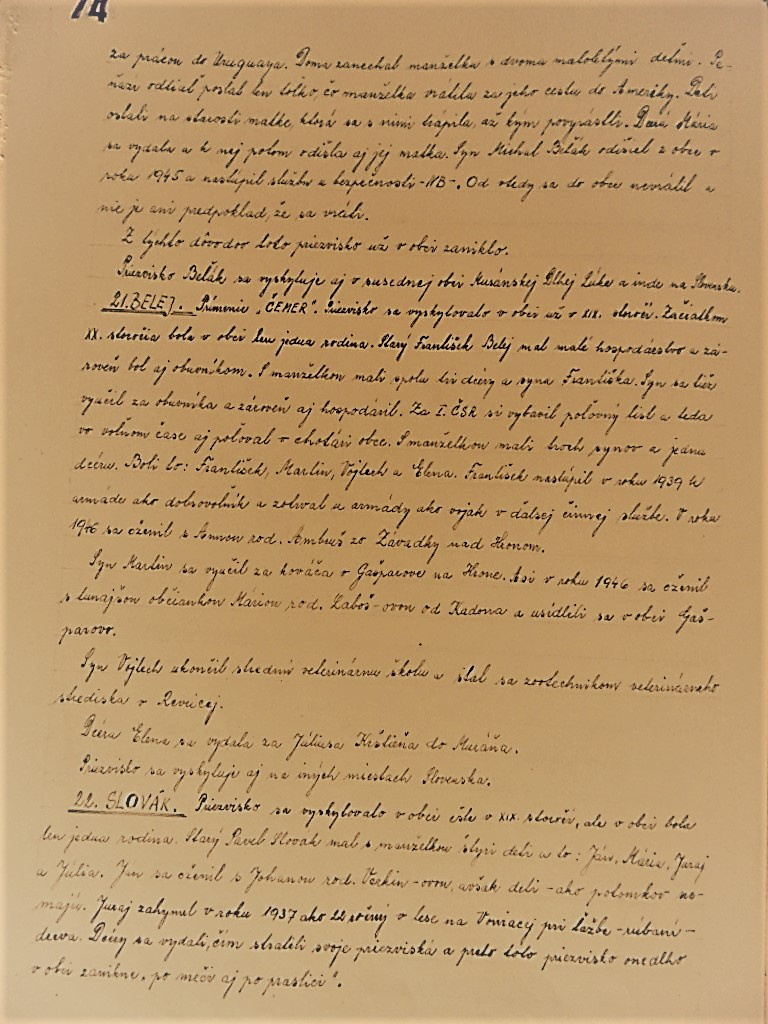 74
za prácou do Uruguaya. Doma zanechal manželku s dvoma maloletými deťmi. Pe-
ňazí odtiaľ poslal len toľko, čo manželka vrátila za jeho cestu do Ameriky. Deti
ostali na starosti matke, ktorá sa s nimi trápila, až kým povyrástli. Dcéra Mária
sa vydala a k nej potom odišla aj jej matka. Syn Michal Belák odišiel z obce v
roku 1945 a nastúpil službu u bezpečnosti -NB-. Od vtedy sa do obce nevrátil a
nie je ani predpoklad, že sa vráti.
Z týchto dôvodov toto priezvisko už v obci zaniklo.
Priezvisko Belák sa vyskytuje aj v susednej obci Muránskej Dlhej Lúke a inde na Slovensku.
21. BELEJ. Prímenie „ČEMER". Priezvisko sa vyskytovalo v obci už v XIX. storočí. Začiatkom
XX. storočia bola v obci len jedna rodina. Starý František Belej mal malé hospodárstvo a zá-
roveň bol aj obuvníkom. S manželkou mali spolu tri dcéry a syna Františka. Syn sa tiež
vyučil za obuvníka a zároveň aj hospodáril. Za I. ČSR si vybavil poľovný líst a teda
vo voľnom čase aj poľoval v chotári obce. S manželkou mali troch synov a jednu
dcéru. Boli to: František, Martin, Vojtech a Elena. František nastúpil v roku 1939 k
armáde ako dobrovoľník a zotrval u armády ako voják v ďalšej činnej službe. V roku
1946 sa oženil s Annou rod. Ambruš zo Závadky nad Hronom.
Syn Martin sa vyučil za kováča v Gašparove na Hrone. Asi v roku 1946 sa oženil
s tunajšou občiankou Máriou rod. Laboš-ovou od Kadona a usídlili sa v obci Gaš-
parovo.
Syn Vojtech ukončil strednú veterinárnu školu a stal sa zootechnikom veterinárneho
strediska v Revúcej.
Dcéra Elena sa vydala za Júliusa Krštieňa do Muráňa.
Priezvisko sa vyskytuje aj na iných miestach Slovenska.
22. SLOVÁK. Priezvisko sa vyskytovalo v obci ešte v XIX. storočí, ale v obci bola
len jedna rodina. Starý Pavel Slovák mal s manželkou štyri deti a to: Ján, Mária, Juraj
a Júlia. Ján sa oženil s Johanou rod. -ovou, avšak deti -ako potomkov ne-
majú. Juraj zahynul v roku 1937 ako 22 ročný v lese na pri ťažbe -rúbaní-
dreva. Dcéry sa vydali, čím stratili svoje priezviská a preto toto priezvisko onedlho
v obci zanikne „po meči aj po praslici".